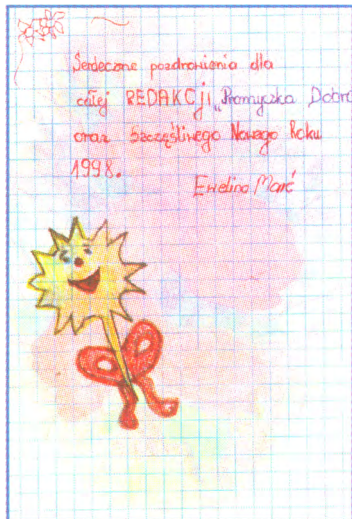 Serdeczne pozdrowienia dla
całej REDAKCJI „Promyczka Dobra
oraz Szczęśliwego Nowego Roku
1998.
Ewelina Marć